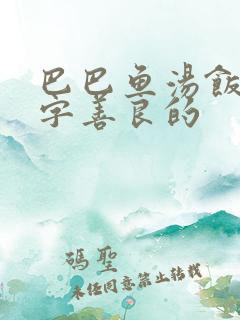 巴巴鱼汤飯
字善良的
碼聖
未经同意禁止转载